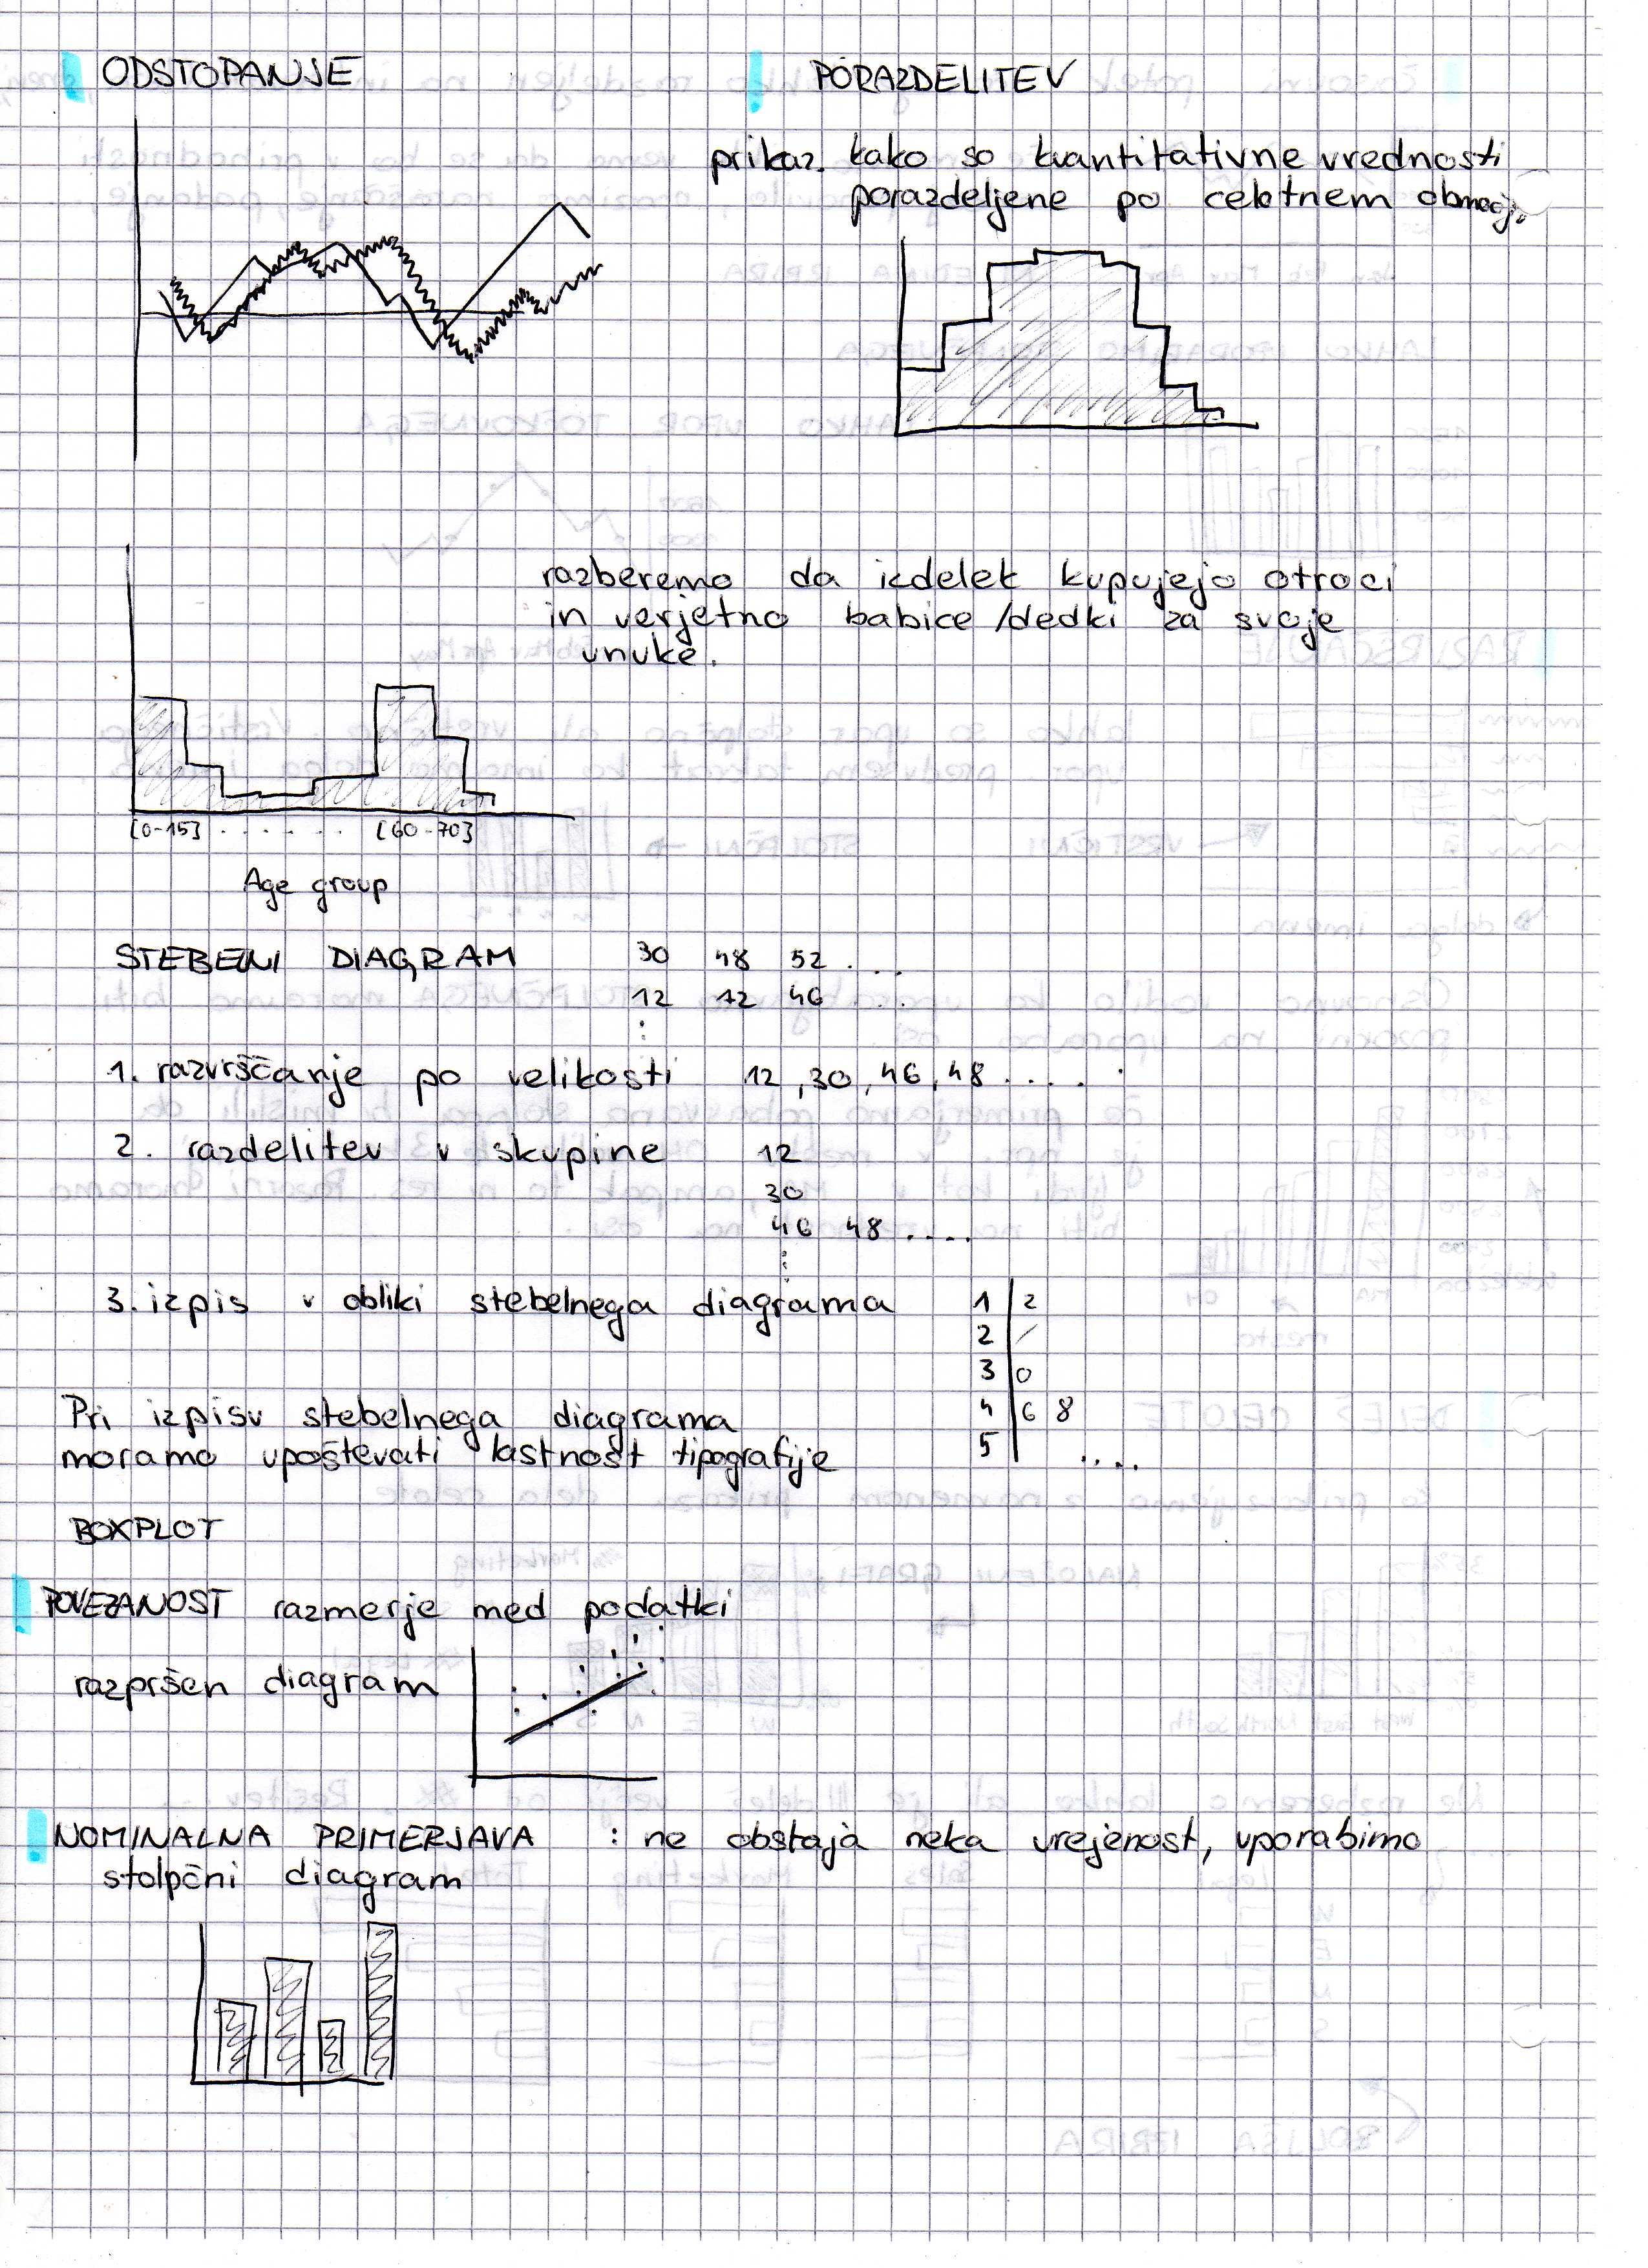 ODSTOPANJE
PORAZDELITEV
prikaz. kako so kvantitativne vrednosti
porazdeljene po celotnem območj.
razberemo da izdelek kupujejo otroci
in verjetno babice /dedki za svoje
unuke.
[0-15] . . . . . . [60-70]
Age group
STEBELNI DIAGRAM 30 48 52 . . .
12 12 46 . . .
1. razvrščanje po velikosti 12, 30, 46, 48 . . . . .
2. razdelitev v skupine 12
30
46 48 . . . .
3. izpis v obliki stebelnega diagrama
1 | 2
2 | /
3 | 0
4 | 6 8
5 | . . . .
Pri izpisu stebelnega diagrama
moramo upoštevati lastnost tipografije
BOXPLOT
POVEZANOST razmerje med podatki
razpršen diagram
NOMINALNA PRIMERJAVA : ne obstaja neka urejenost, uporabimo
stolpčni diagram